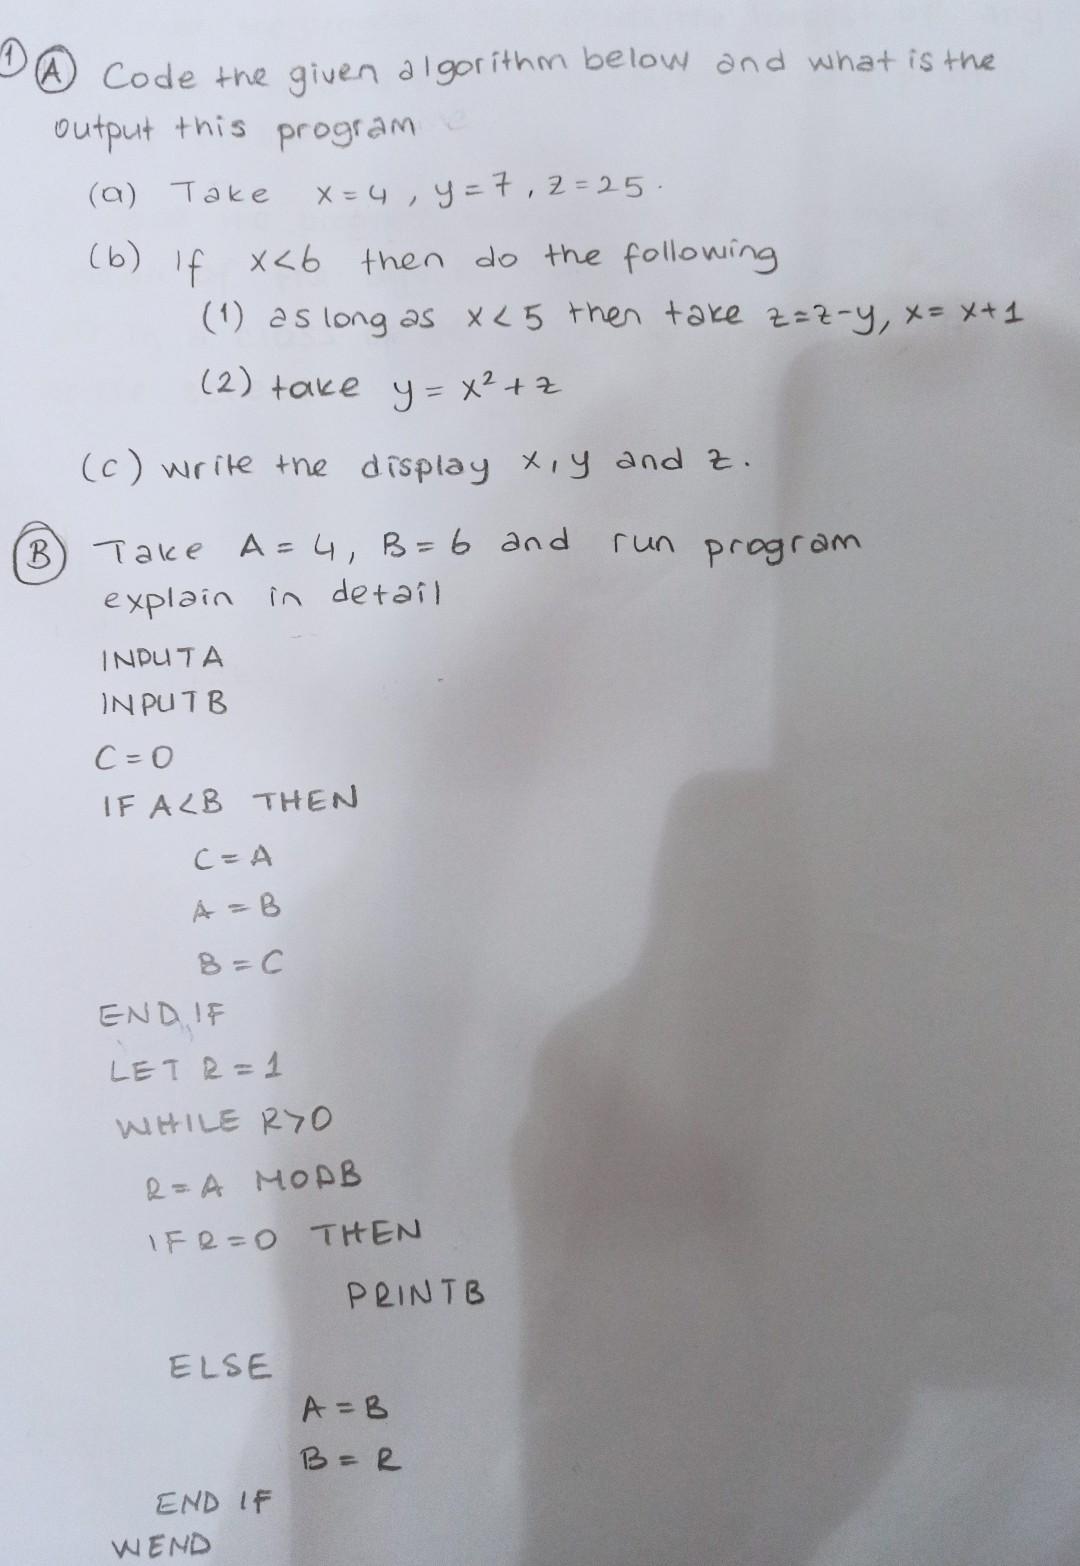 1 A Code the given algorithm below and what is the
output this program
(a) Take x=4, y=7, z=25.
(b) If x<6 then do the following
(1) as long as x<5 then take z=z-y, x=x+1
(2) take y=x²+z
(c) write the display x,y and z.
B Take A=4, B=6 and run program
explain in detail
INPUTA
INPUTB
C=0
IF A<B THEN
C=A
A=B
B=C
END IF
LET R=1
WHILE R>0
R=A MODB
IF R=0 THEN
PRINTB
ELSE
A=B
B=R
END IF
WEND